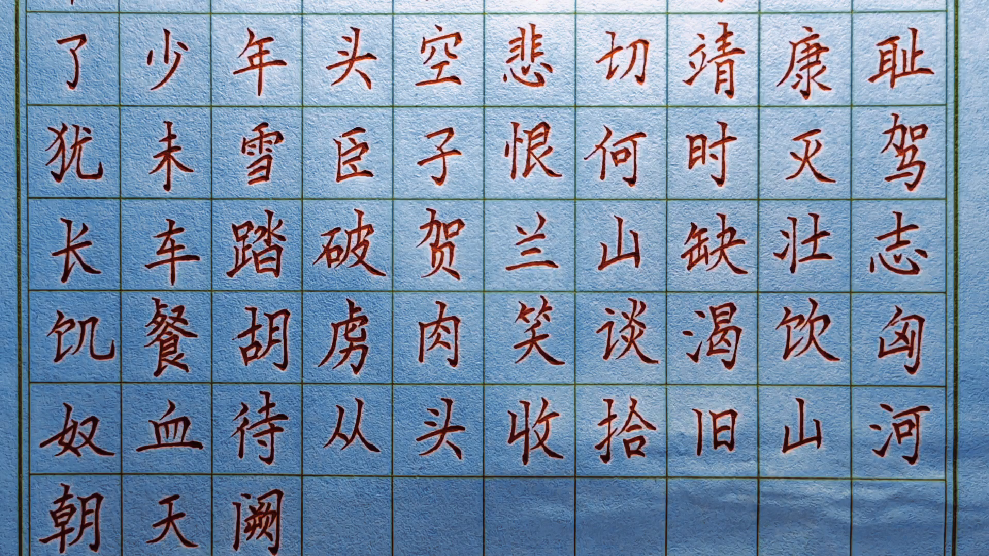 了少年头空悲切靖康耻
犹未雪臣子恨何时灭驾
长车踏破贺兰山缺壮志
饥餐胡虏肉笑谈渴饮匈
奴血待从头收拾旧山河
朝天阙